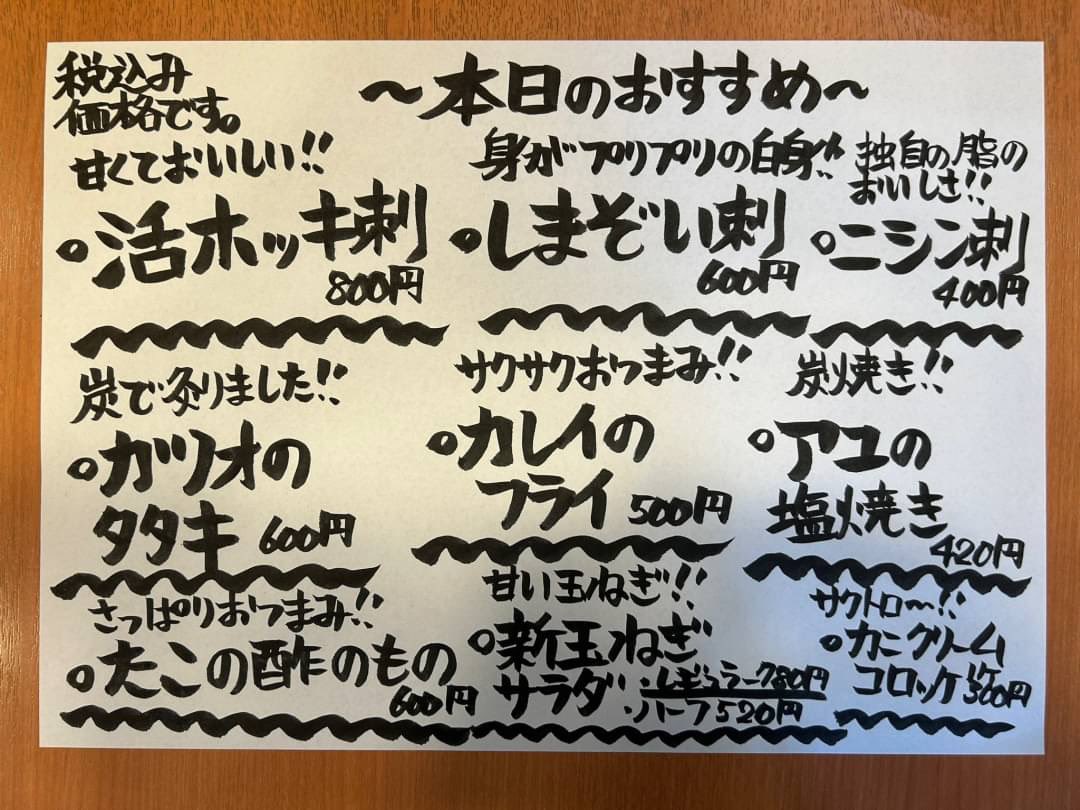 税込み
価格です。
～本日のおすすめ～
甘くておいしい!!
○活ホッキ刺
800円
身がプリプリの白身!!
○しまぞい刺
600円
独自の脂の
おいしさ!!
○ニシン刺
400円
炭で炙りました!!
○カツオの
タタキ 600円
サクサクおつまみ!!
○カレイの
フライ 500円
炭焼き!!
○アユの
塩焼き
420円
さっぱりおつまみ!!
○たこの酢のもの
600円
甘い玉ねぎ!!
○新玉ねぎ
サラダ
・レギュラー780円
・ハーフ520円
サクトロ〜!!
○カニクリーム
コロッケ 1ケ300円